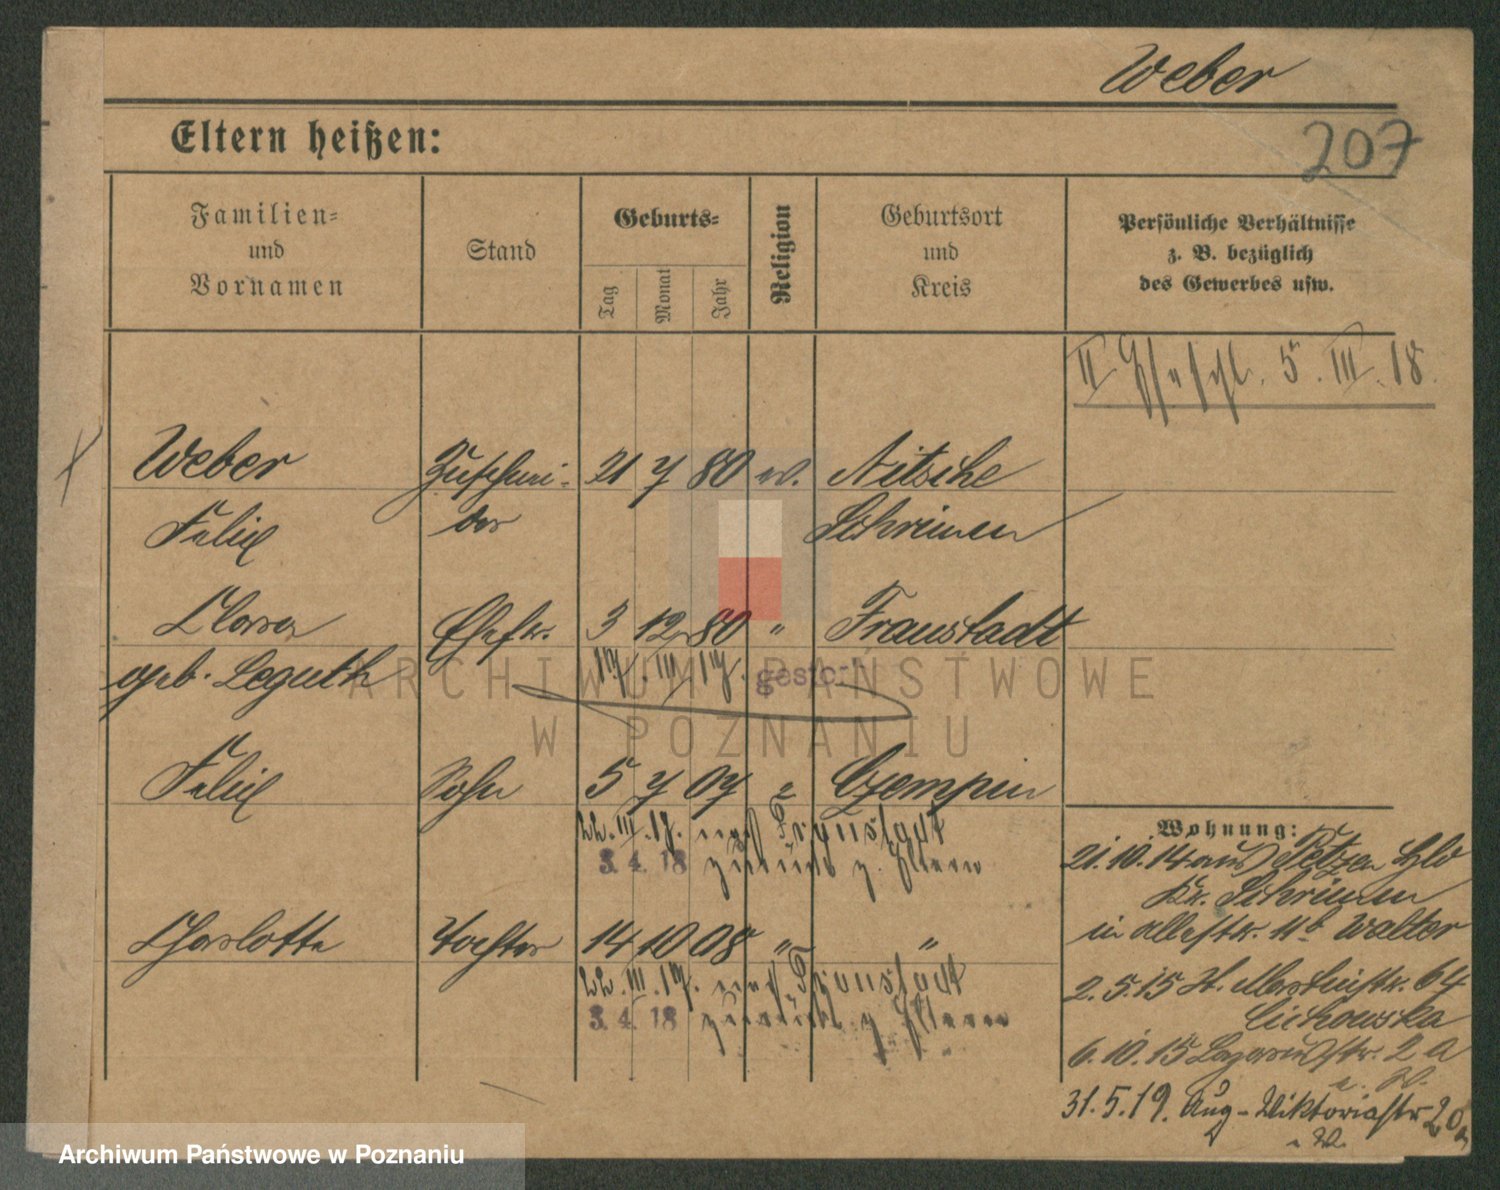 Weber
207
Eltern heißen:
Familien=
und
Vornamen
Stand
Geburts=
Tag
Monat
Jahr
Religion
Geburtsort
und
Kreis
Persönliche Verhältnisse
z. B. bezüglich
des Gewerbes usw.
II 5. III. 18.
Weber Zuschnei- 21 7 80 Nitsche
Felix der Schrimm
Clara Ehefr. 3 12 80 " Fraustadt
geb. Leguth 17. III. 17. gestorb.
Felix Sohn 5 7 07 Czempin
22. III. 17. nach Fraustadt
3. 4. 18 zurück z. Eltern
Charlotte Tochter 14 10 08 " "
22. III. 17. nach Fraustadt
3. 4. 18 zurück z. Eltern
Wohnung:
21.10.14 aus
Kr. Schrimm
in Walter
2.5.15 64
Cichowska
6.10.15 2 a
31.5.19. Aug-Viktoriastr 20
ARCHIWUM PAŃSTWOWE
W POZNANIU
Archiwum Państwowe w Poznaniu